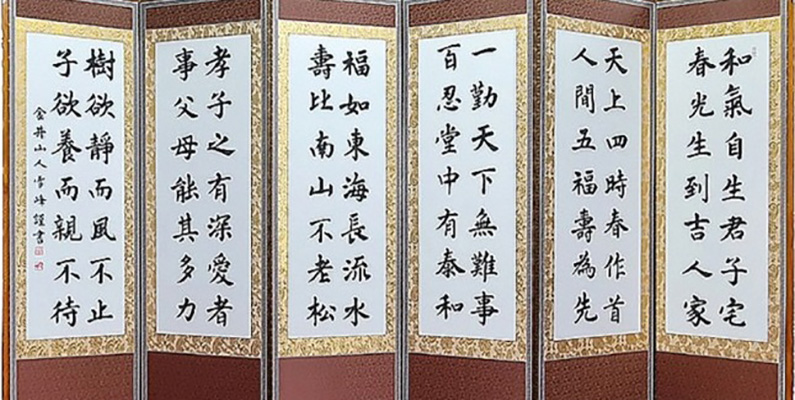 和氣自生君子宅
春光生到吉人家
天上四時春作首
人間五福壽為先
一勤天下無難事
百忍堂中有泰和
福如東海長流水
壽比南山不老松
孝子之有深愛者
事父母能其多力
樹欲靜而風不止
子欲養而親不待
金井山人雪峰謹書